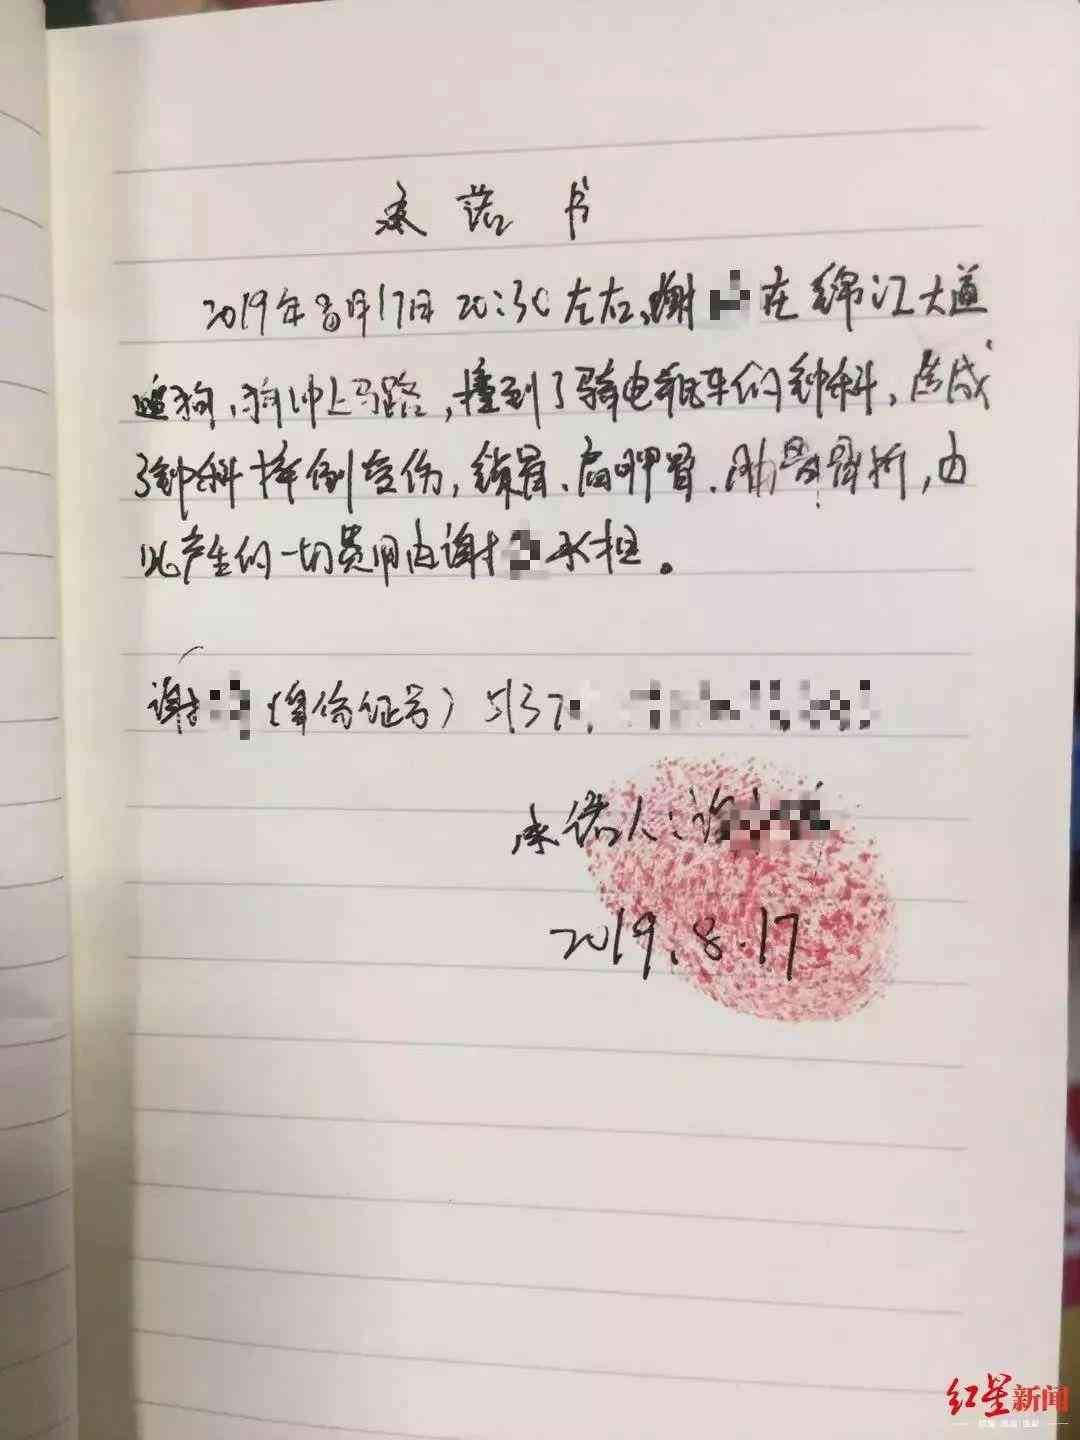 承诺书
2019年8月17日20:30左右,谢 在锦江大道
遛狗,狗冲上马路,撞到了骑电瓶车的钟科,造成
了钟科摔倒受伤,锁骨、肩胛骨、肋骨骨折,由
此产生的一切费用由谢 承担。
谢 (身份证号) 5137
承诺人:谢
2019.8.17
红星新闻